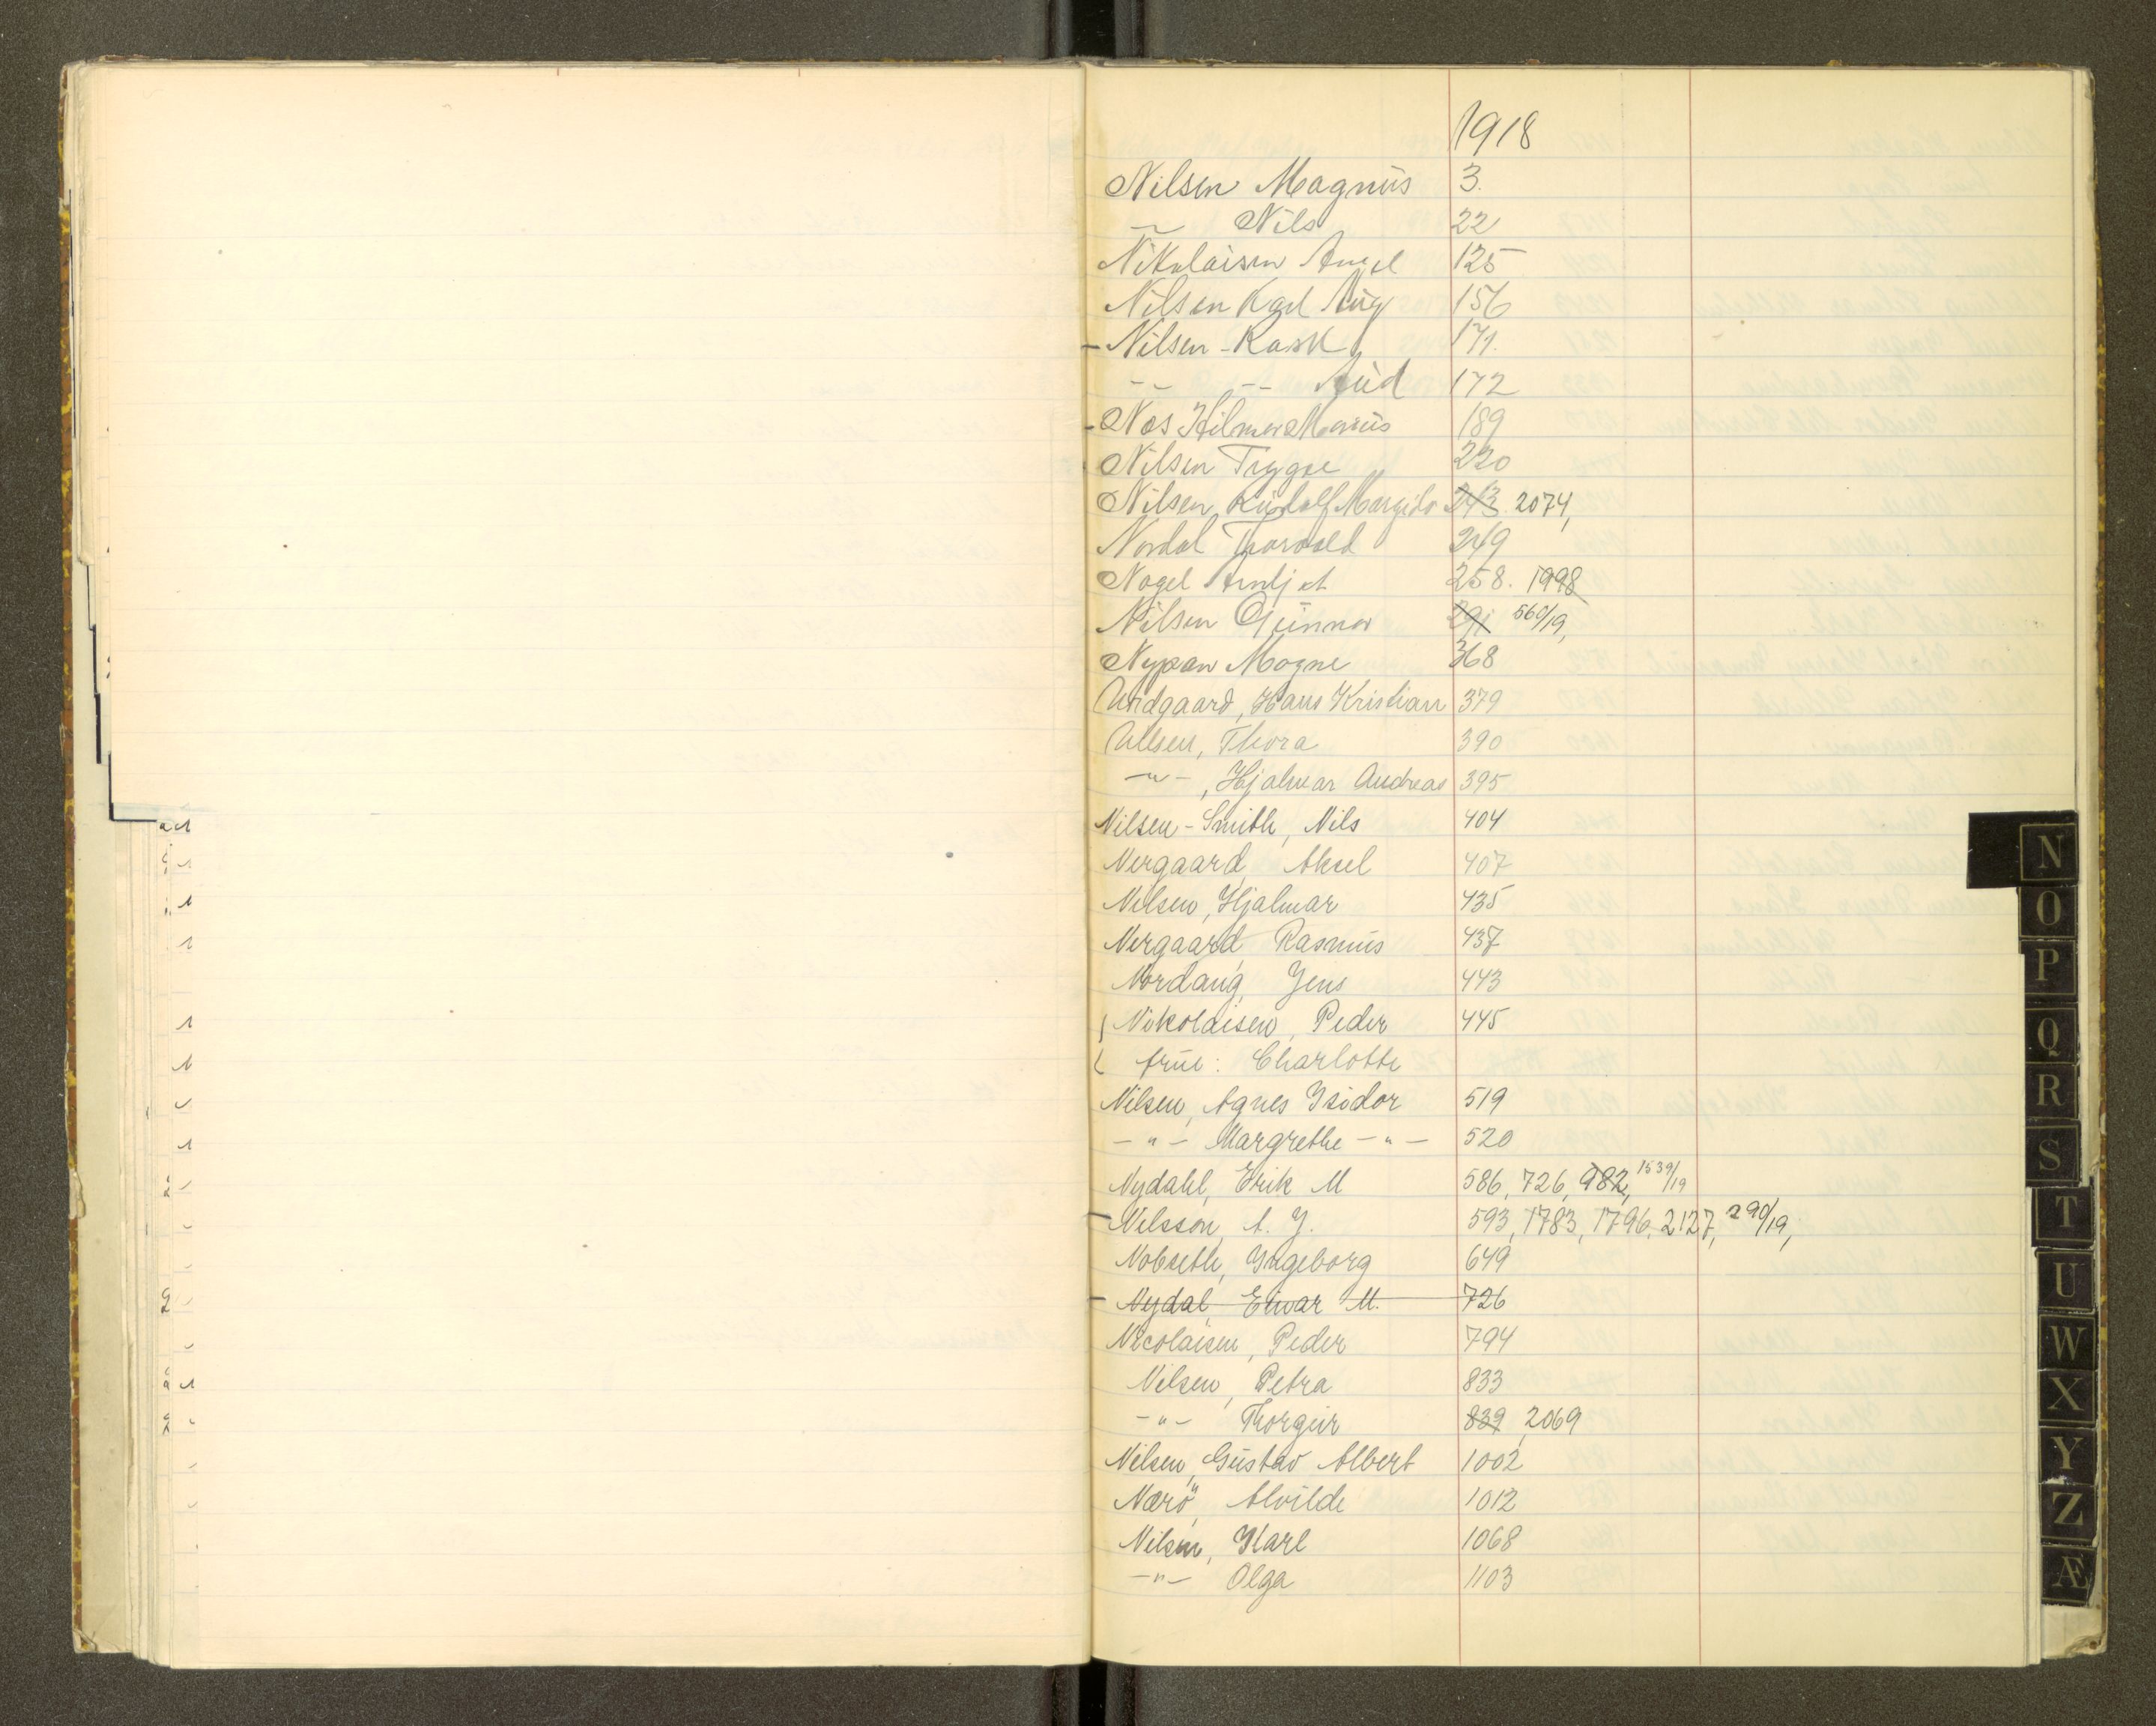 1918
Nilsen Magnus 3.
-"- Nils 22
Nikolaisen Aksel 125
Nilsen Karl Aug 156
- Nilsen - Rask 171.
-"- -"- Aud 172
- Næs Hilmar Marius 189
Nilsen Trygve 220
Nilsen, Rudolf Margido 243. 2074,
Nordal Thorvald 249
Nagel 258. 1998
Nilsen Gunnar 291 560/19,
Nypan Magne 368
Nidgaard, Hans Kristian 379
Nilsen, Thora 390
-"-, Hjalmar Andreas 395
Nilsen - Smith, Nils 404
Nergaard, Aksel 407
Nilsen, Hjalmar 435
Nergaard, Rasmus 437
Nordaug, Jens 443
Nikolaisen, Peder 445
frue: Charlotte
Nilsen, Agnes Isidor 519
-"- Margrethe -"- 520
Nydahl, Erik M 586, 726, 982, 1539/19
- Nilsson, A. J. 593, 1783, 1796, 2127, 290/19,
Nobseth, Ingeborg 649
- Nydal, Einar M. 726
Nicolaisen, Peder 794
Nilsen, Petra 833
-"- Thorgeir 839, 2069
Nilsen, Gustav Albert 1002
Nærö, Alvilde 1012
Nilsen, Karl 1068
-"- Olga 1103
N
O
P
Q
R
S
T
U
W
X
Y
Z
Æ